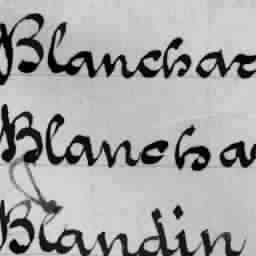 Blanchar
Blancha
Blandin